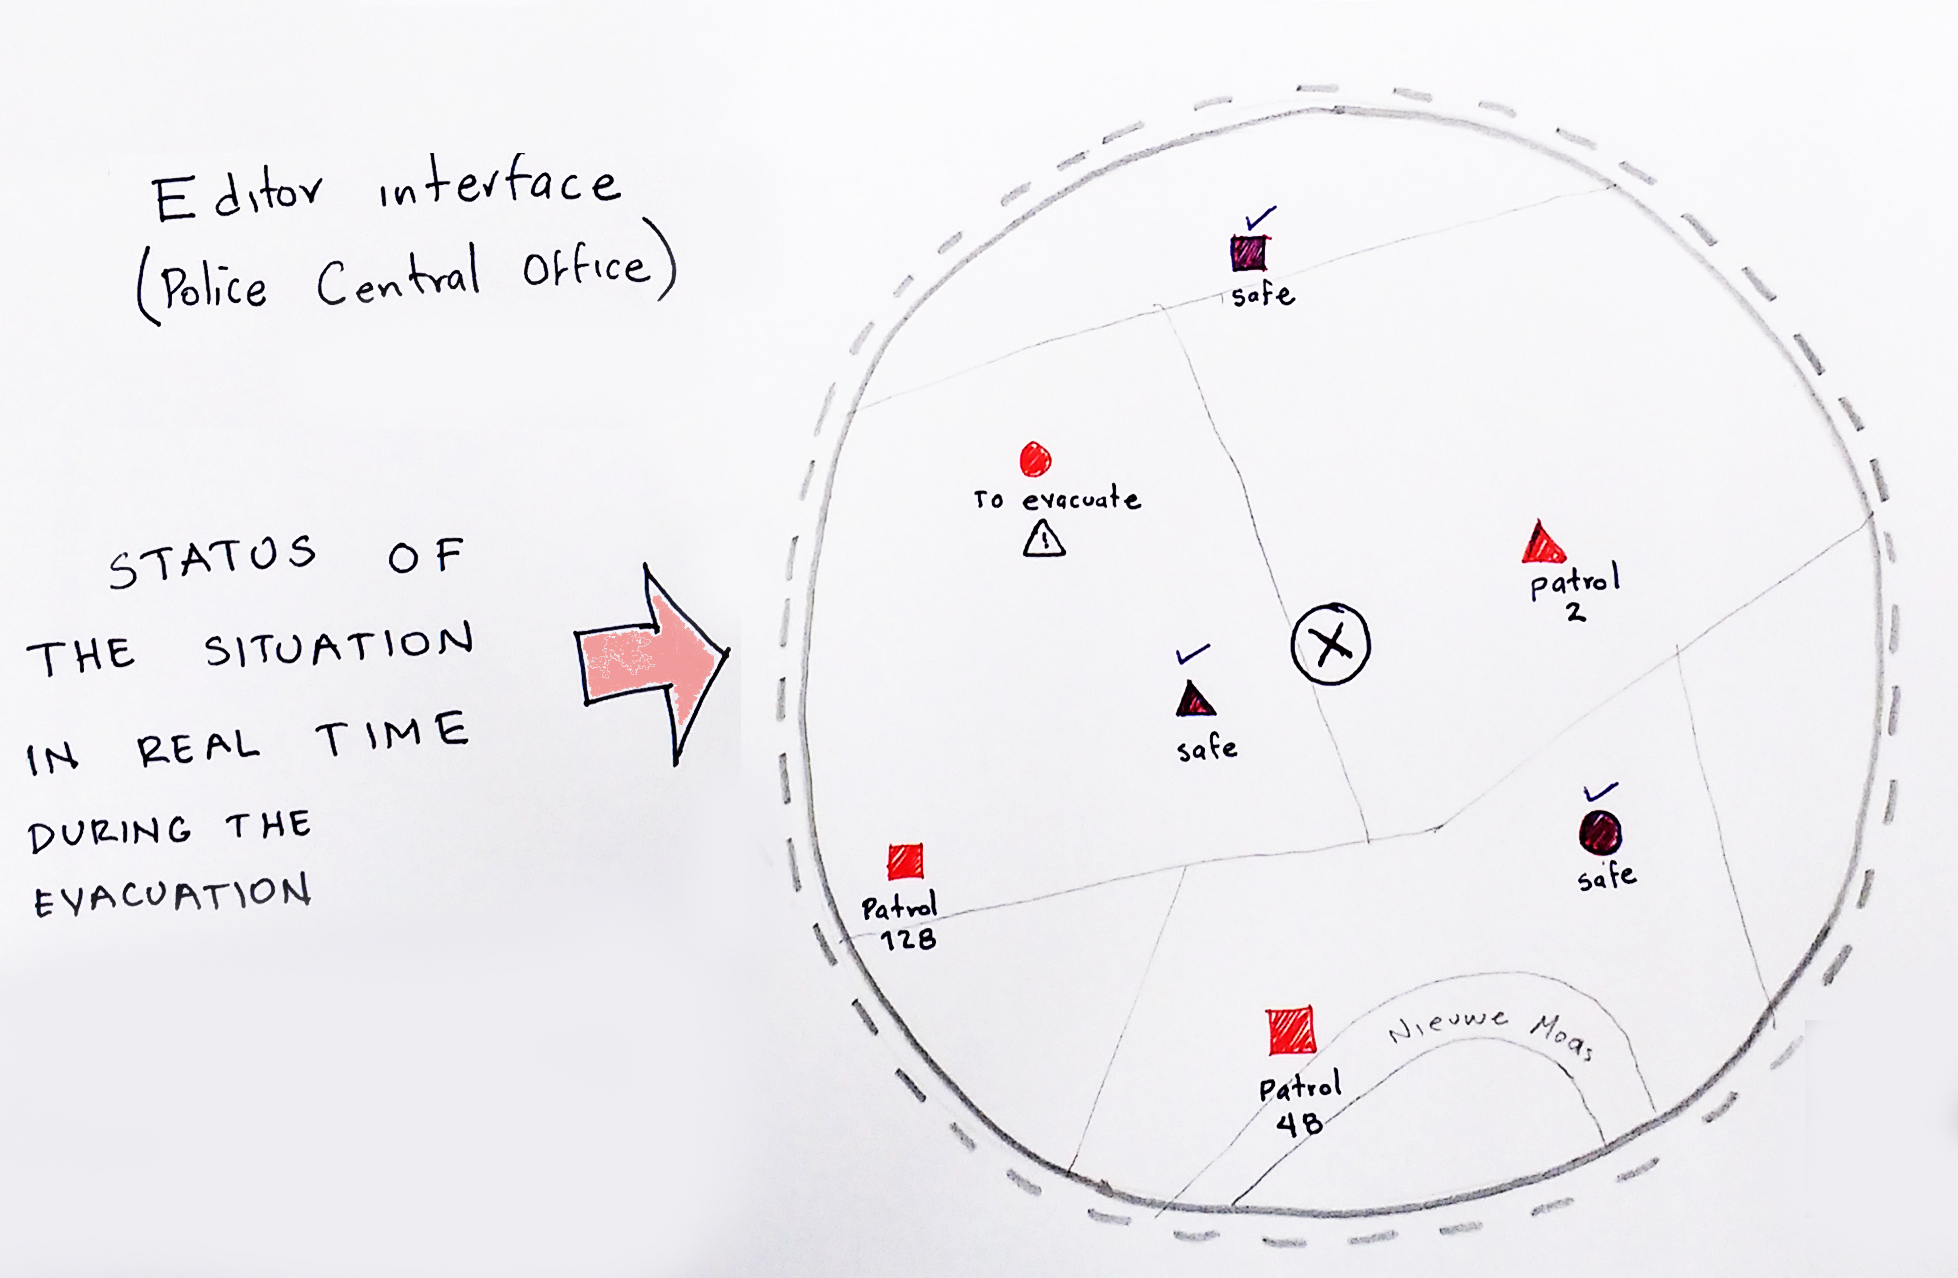 Editor interface
(Police Central Office)
STATUS OF
THE SITUATION
IN REAL TIME
DURING THE
EVACUATION
safe
To evacuate
!
Patrol
2
safe
safe
Patrol
128
Nieuwe Moas
Patrol
48